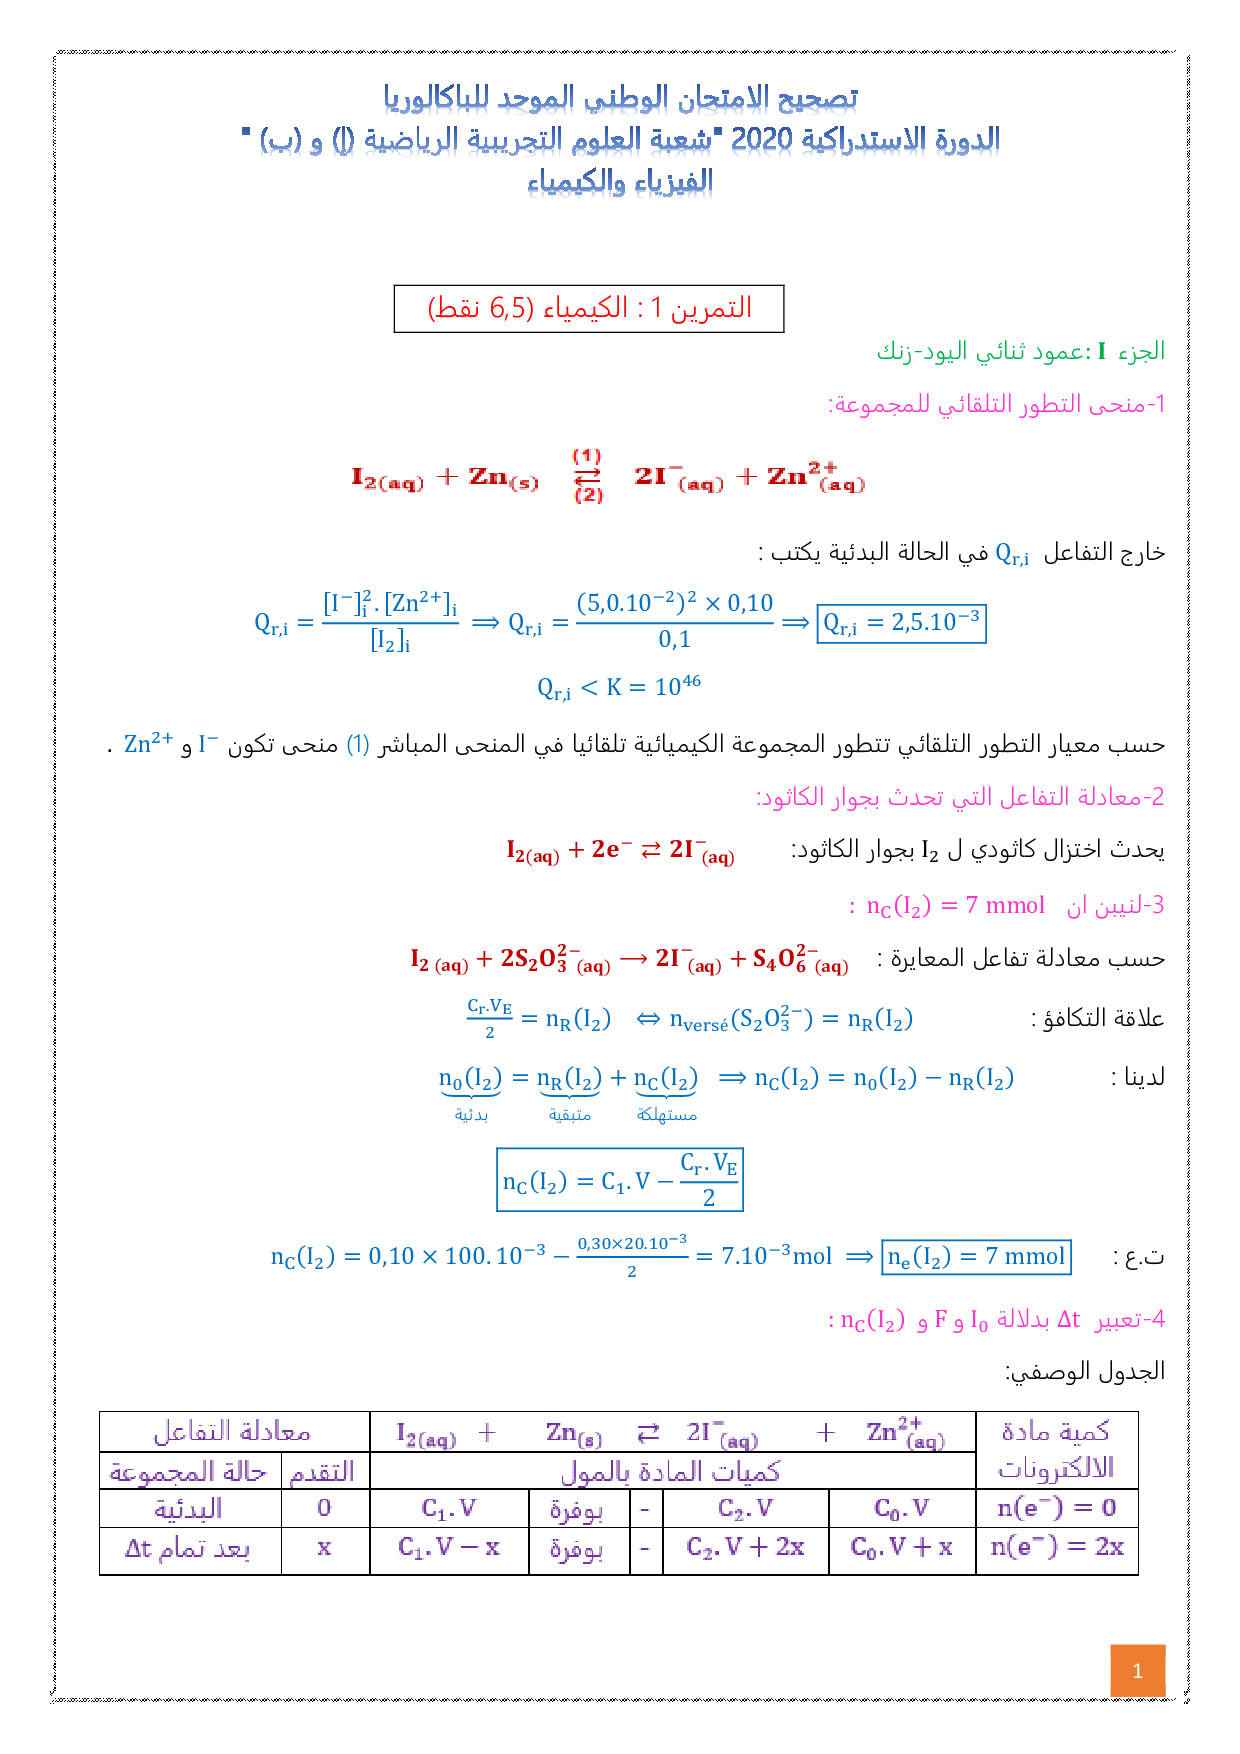 تصحيح الامتحان الوطني الموحد للباكالوريا
الدورة الاستدراكية 2020 "شعبة العلوم التجريبية الرياضية (إ) و (ب) "
الفيزياء والكيمياء
التمرين 1 : الكيمياء (6,5 نقط)
الجزء I :عمود ثنائي اليود-زنك
1-منحى التطور التلقائي للمجموعة:
I₂(aq) + Zn(s) ⇄ (1) (2) 2I⁻(aq) + Zn²⁺(aq)
خارج التفاعل Q_{r,i} في الحالة البدئية يكتب :
Q_{r,i} = [I⁻]_i². [Zn²⁺]_i / [I₂]_i ⟹ Q_{r,i} = (5,0.10⁻²)² × 0,10 / 0,1 ⟹ Q_{r,i} = 2,5.10⁻³
Q_{r,i} < K = 10⁴⁶
حسب معيار التطور التلقائي تتطور المجموعة الكيميائية تلقائيا في المنحى المباشر (1) منحى تكون I⁻ و Zn²⁺ .
2-معادلة التفاعل التي تحدث بجوار الكاثود:
يحدث اختزال كاثودي ل I₂ بجوار الكاثود: I₂(aq) + 2e⁻ ⇄ 2I⁻(aq)
3-لنيبن ان n_C(I₂) = 7 mmol :
حسب معادلة تفاعل المعايرة : I₂ (aq) + 2S₂O₃²⁻(aq) ⟶ 2I⁻(aq) + S₄O₆²⁻(aq)
علاقة التكافؤ : C_r.V_E / 2 = n_R(I₂) ⇔ n_versé(S₂O₃²⁻) = n_R(I₂)
لدينا : n₀(I₂) = n_R(I₂) + n_C(I₂) ⟹ n_C(I₂) = n₀(I₂) − n_R(I₂)
بدئية متبقية مستهلكة
n_C(I₂) = C₁. V − C_r. V_E / 2
ت.ع : n_C(I₂) = 0,10 × 100. 10⁻³ − 0,30×20.10⁻³ / 2 = 7.10⁻³mol ⟹ n_e(I₂) = 7 mmol
4-تعبير Δt بدلالة I₀ و F و n_C(I₂) :
الجدول الوصفي:
معادلة التفاعل I₂(aq) + Zn(s) ⇄ 2I⁻(aq) + Zn²⁺(aq) كمية مادة الالكترونات
حالة المجموعة التقدم كميات المادة بالمول
البدئية 0 C₁. V بوفرة - C₂. V C₀. V n(e⁻) = 0
بعد تمام Δt x C₁. V − x بوفرة - C₂. V + 2x C₀. V + x n(e⁻) = 2x
1